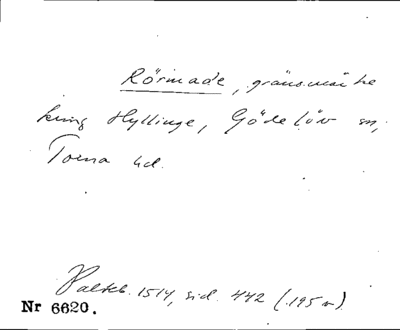 Rörmade, gränsmärke
kring Hyllinge, Gödelöv sn,
Torna hd.
Palteb. 1514, sid. 442 (195 r).
Nr 6620.